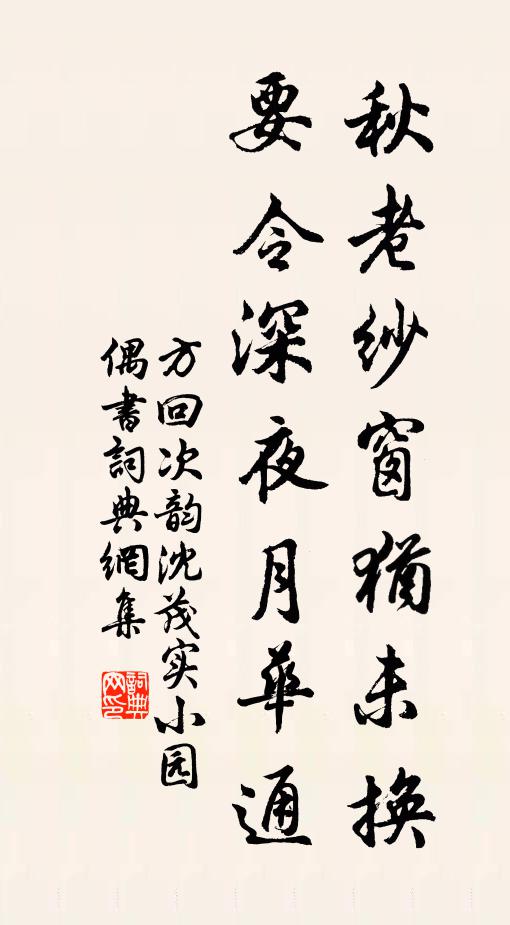 秋老纱窗猶未换
要令深夜月華通
方回次韵沈茂实小园
偶書詞典網集
詞典网印